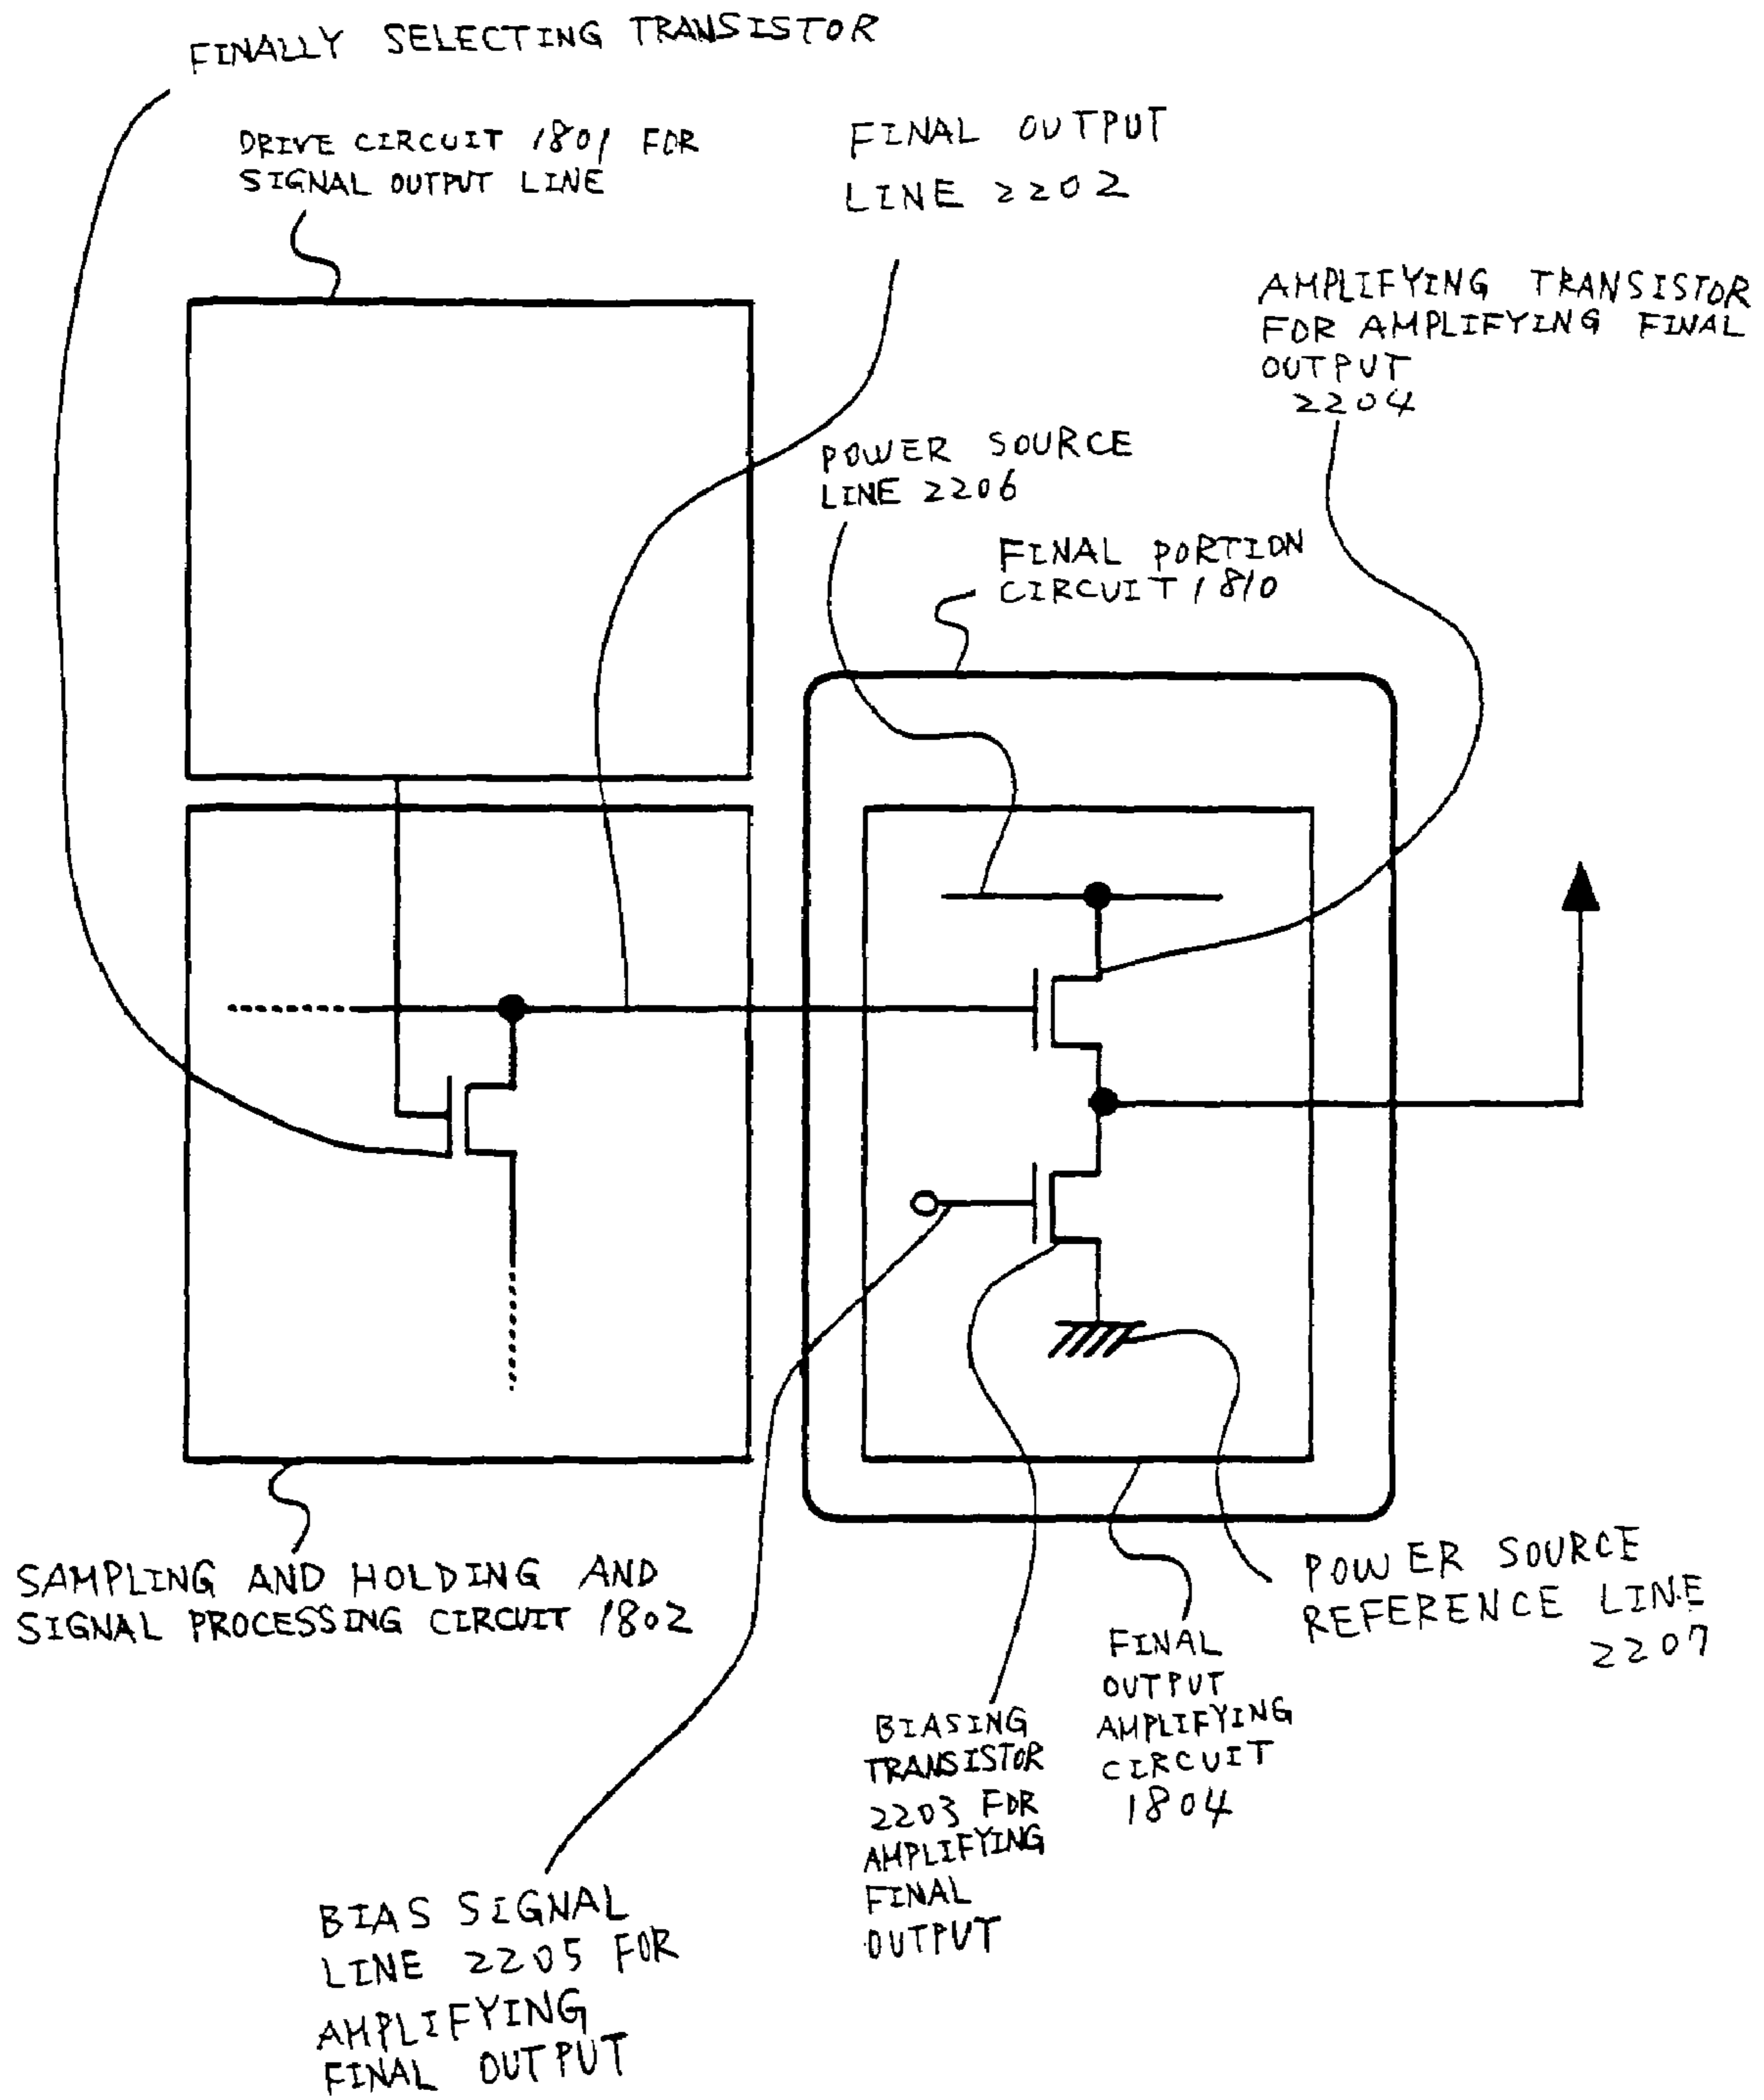 FINALLY SELECTING TRANSISTOR
DRIVE CIRCUIT 1801 FOR
SIGNAL OUTPUT LINE
FINAL OUTPUT
LINE 2202
AMPLIFYING TRANSISTOR
FOR AMPLIFYING FINAL
OUTPUT
2204
POWER SOURCE
LINE 2206
FINAL PORTION
CIRCUIT 1810
SAMPLING AND HOLDING AND
SIGNAL PROCESSING CIRCUIT 1802
POWER SOURCE
REFERENCE LINE
2207
FINAL
OUTPUT
AMPLIFYING
CIRCUIT
1804
BIASING
TRANSISTOR
2203 FOR
AMPLIFYING
FINAL
OUTPUT
BIAS SIGNAL
LINE 2205 FOR
AMPLIFYING
FINAL OUTPUT